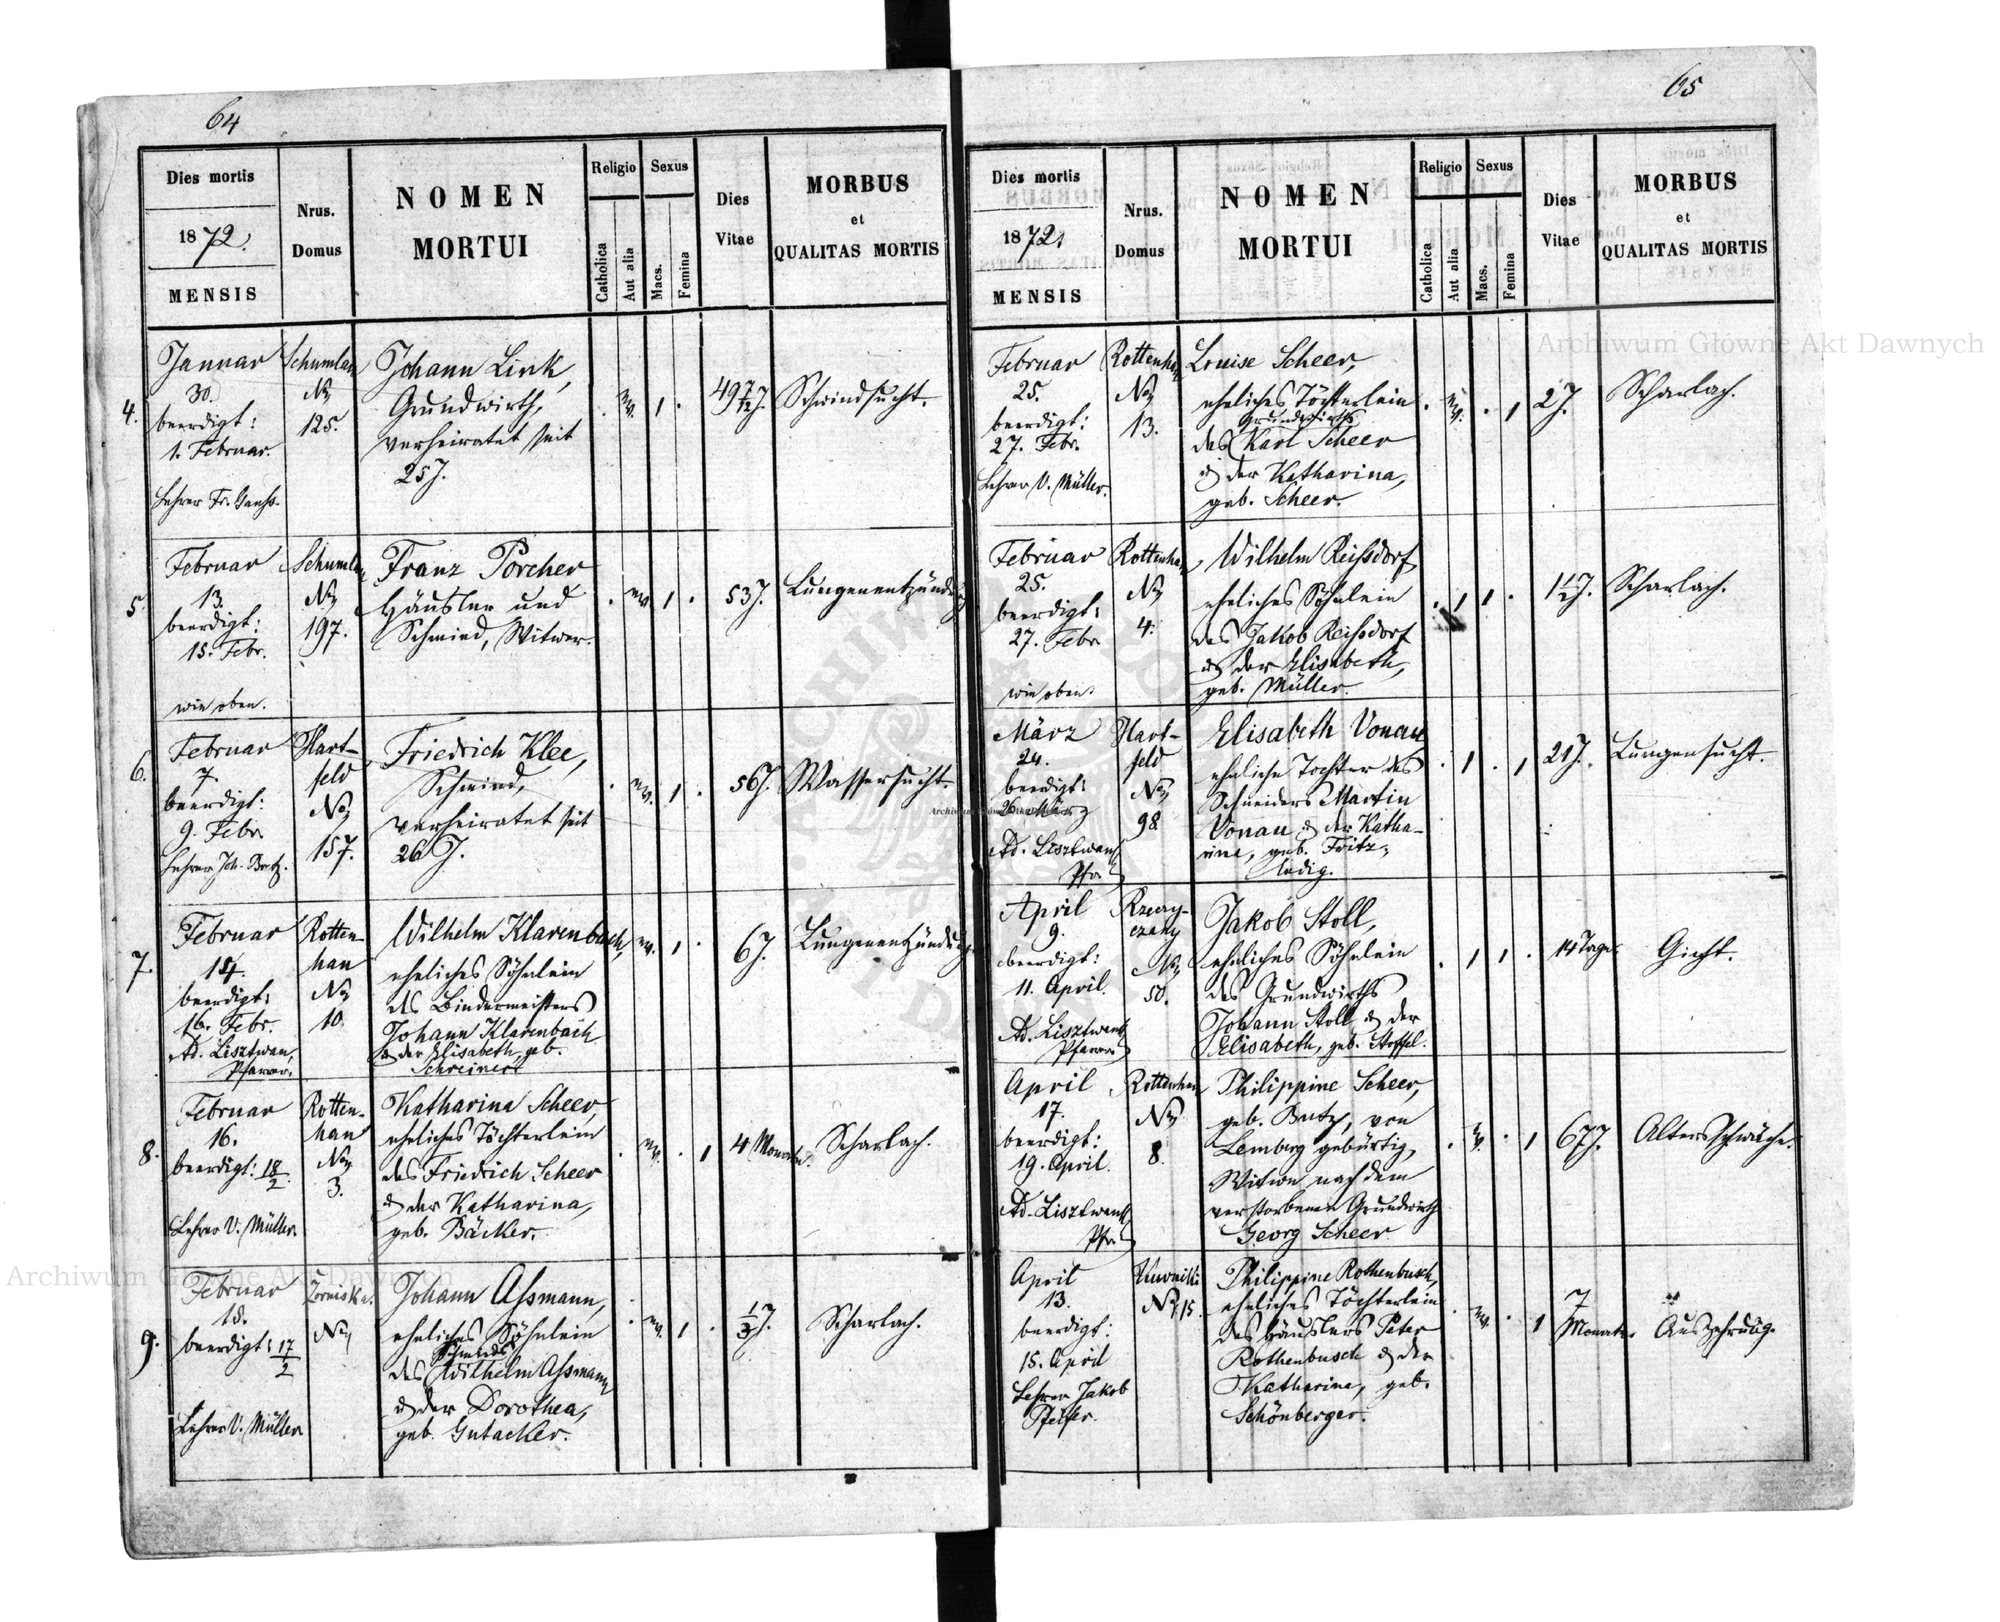 64
Dies mortis
1872.
MENSIS
Nrus.
Domus
NOMEN
MORTUI
Religio
Catholica
Aut alia
Sexus
Macs.
Femina
Dies
Vitae
MORBUS
et
QUALITAS MORTIS
4.
Januar
30.
beerdigt:
1. Februar.
Lehrer Fr.
Schumlau
No
125.
Johann Link,
Grundwirth,
verheiratet seit
25 J.
1
49 7/12 J.
Schwindsucht.
5.
Februar
13.
beerdigt:
15. Febr.
wie oben.
Schumlau
No
197.
Franz Porcher
Häusler und
Schmied, Witwer.
1
53 J.
Lungenentzündung
6.
Februar
7.
beerdigt:
9. Febr.
Lehrer Joh.
Hart-
feld
No
157.
Friedrich Klee,
Schmied,
verheiratet seit
26 J.
1
56 J.
Wassersucht.
7.
Februar
14.
beerdigt:
16. Febr.
Ad. Lisztwan,
Pfarrer.
Rotten-
han
No
10.
Wilhelm Klarenbach,
eheliches Söhnlein
des Bindermeisters
Johann Klarenbach
& der Elisabeth, geb.
Schreiner
1
6 J.
Lungenentzündung.
8.
Februar
16.
beerdigt: 18/2.
Lehrer V. Müller.
Rotten-
han
No
3.
Katharina Scheer,
eheliches Töchterlein
des Friedrich Scheer
& der Katharina,
geb. Bäcker.
1
4 Monate.
Scharlach.
9.
Februar
15.
beerdigt: 17/2
Lehrer V. Müller
No
Johann Assmann,
eheliches Söhnlein
Schmieds
des Wilhelm Assmann
& der Dorothea,
geb. Gutacker.
1
1/3 J.
Scharlach.
65
Dies mortis
1872.
MENSIS
Nrus.
Domus
NOMEN
MORTUI
Religio
Catholica
Aut alia
Sexus
Macs.
Femina
Dies
Vitae
MORBUS
et
QUALITAS MORTIS
Februar
25.
beerdigt:
27. Febr.
Lehrer V. Müller.
Rottenhan
No
13.
Louise Scheer,
eheliches Töchterlein
Grundwirths
des Karl Scheer
& der Katharina,
geb. Scheer.
1
2 J.
Scharlach.
Februar
25.
beerdigt:
27. Febr
wie oben.
Rottenhan
No
4.
Wilhelm Reissdorf
eheliches Söhnlein
des Jakob Reissdorf
& der Elisabeth,
geb. Müller.
1 1
1 1/2 J.
Scharlach.
März
24.
beerdigt:
26. März
Ad. Lisztwan
Pfr.
Hart-
feld
No
98
Elisabeth Vonau
eheliche Tochter des
Schneiders Martin
Vonau & der Katha-
rina, geb. Fritz,
ledig.
1 1
21 J.
Lungensucht.
April
9.
beerdigt:
11. April.
Ad. Lisztwan
Pfarrer
Rzeczy-
czany
No
50.
Jakob Stoll,
eheliches Söhnlein
des Grundwirths
Johann Stoll & der
Elisabeth, geb. Stoffel.
1 1
14 Tage.
Gicht.
April
17.
beerdigt:
19. April.
Ad. Lisztwan
Pfr.
Rottenhan
No
8.
Philippine Scheer,
geb. Butz, von
Lemberg gebürtig,
Witwe nach dem
verstorbenen Grundwirth
Georg Scheer
1
67 J.
Altersschwäche.
April
13.
beerdigt:
15. April
Lehrer Jakob
Pfeifer.
No 15
Philippine Rothenbusch,
eheliches Töchterlein
des Häuslers Peter
Rothenbusch & der
Katharina, geb.
Schönberger.
1
7
Monate.
Auszehrung.
Archiwum Główne Akt Dawnych
Archiwum Główne Akt Dawnych
Archiwum Główne Akt Dawnych